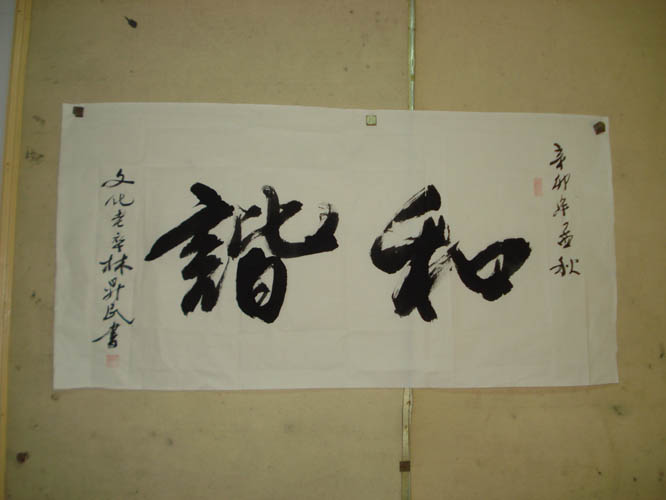 辛卯年孟秋
和諧
文化老卒林昇民書